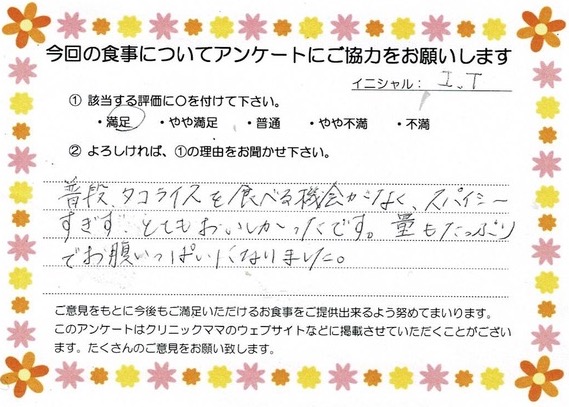 今回の食事についてアンケートにご協力をお願いします
イニシャル： I.T
① 該当する評価に〇を付けて下さい。
・満足 ・やや満足 ・普通 ・やや不満 ・不満
② よろしければ、①の理由をお聞かせ下さい。
普段、タコライスを食べる機会がなく、スパイシー
すぎず、とてもおいしかったです。量もたっぷり
でお腹いっぱいになりました。
ご意見をもとに今後もご満足いただけるお食事をご提供出来るよう努めてまいります。
このアンケートはクリニックママのウェブサイトなどに掲載させていただくことがござい
ます。たくさんのご意見をお願い致します。